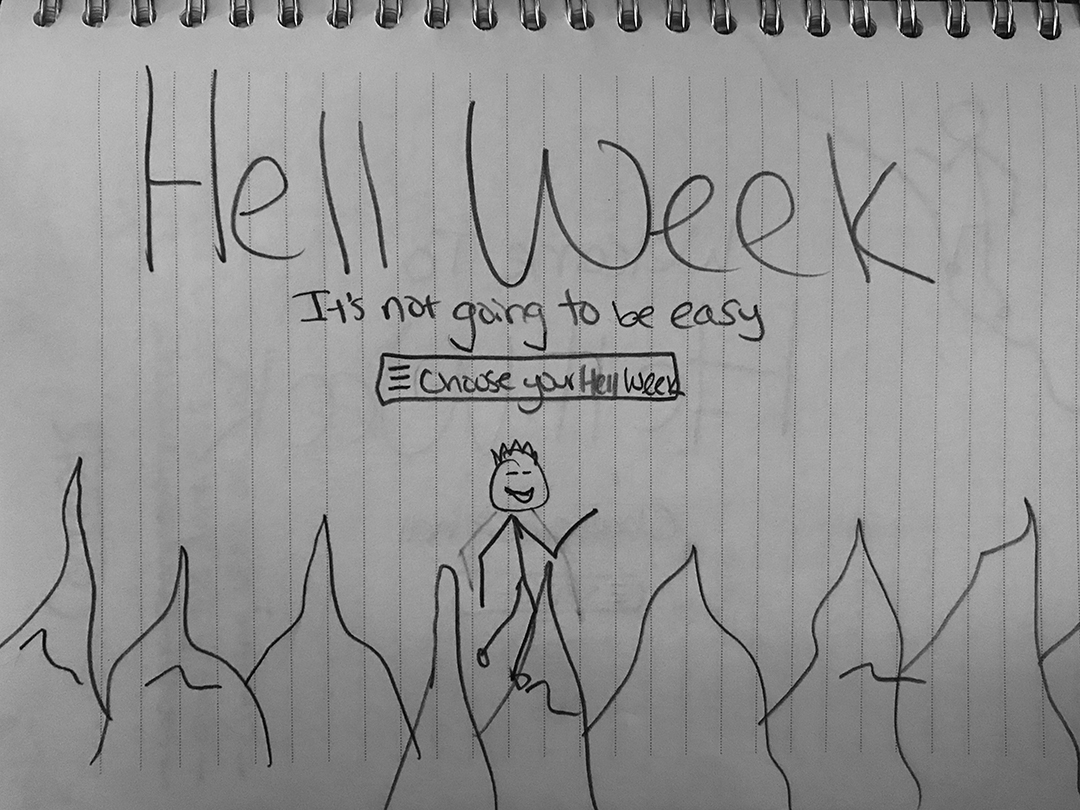 Hell Week
It's not going to be easy
Choose your Hell Week